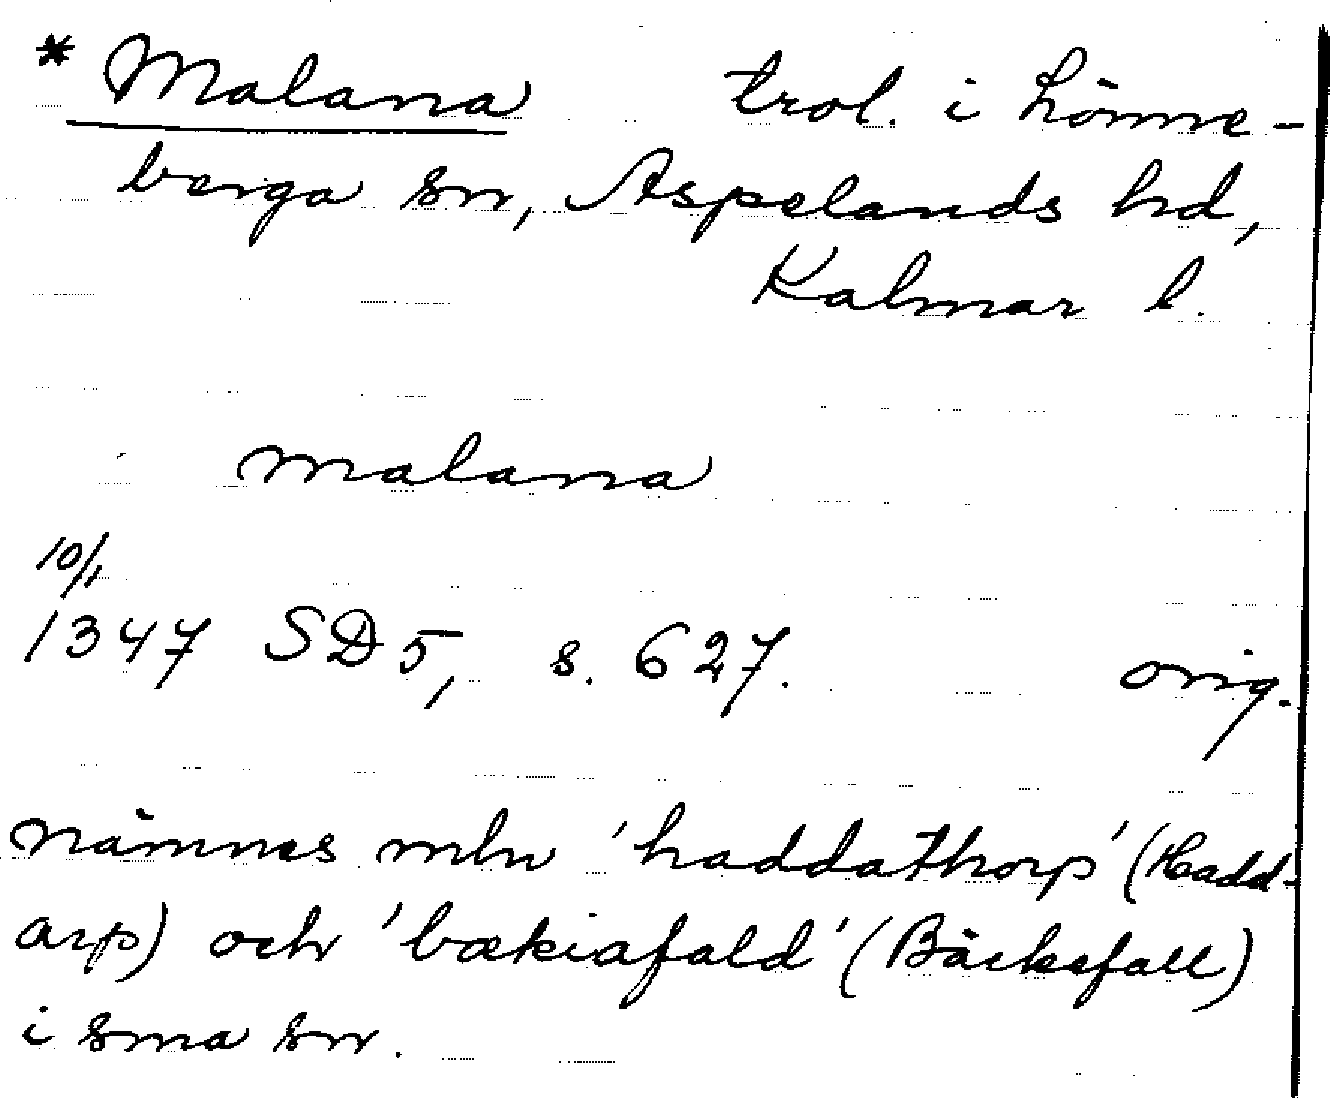 * Malana trol. i Lönne-
berga sn, Aspelands hd,
Kalmar l.
malana
10/1
1347 SD 5, s. 627. orig.
nämnes mln 'haddathorp' (Hadd-
arp) och 'bækiafald' (Bäckefall)
i sma sn.